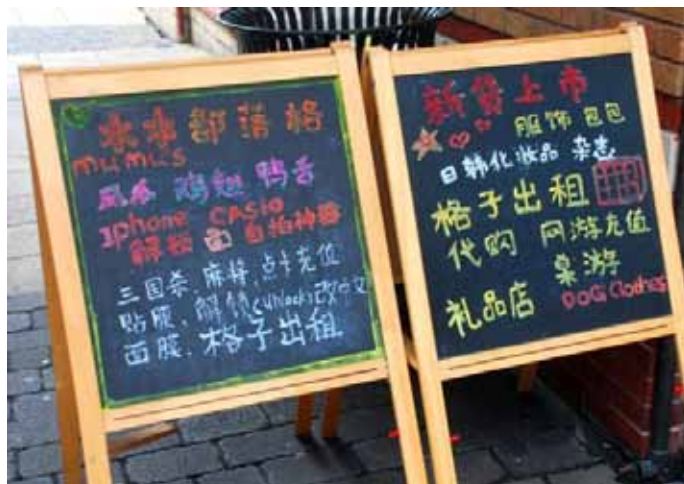 木木部落格
mumu's
凤爪 鸡翅 鸭舌
Iphone CASIO
解锁 自拍神器
三国杀、麻将、点卡充值
贴膜、解锁(unlock)改中文
面膜、格子出租
新货上市
服饰 包包
日韩化妆品 杂志
格子出租
代购 网游充值
桌游
礼品店 DOG Clothes